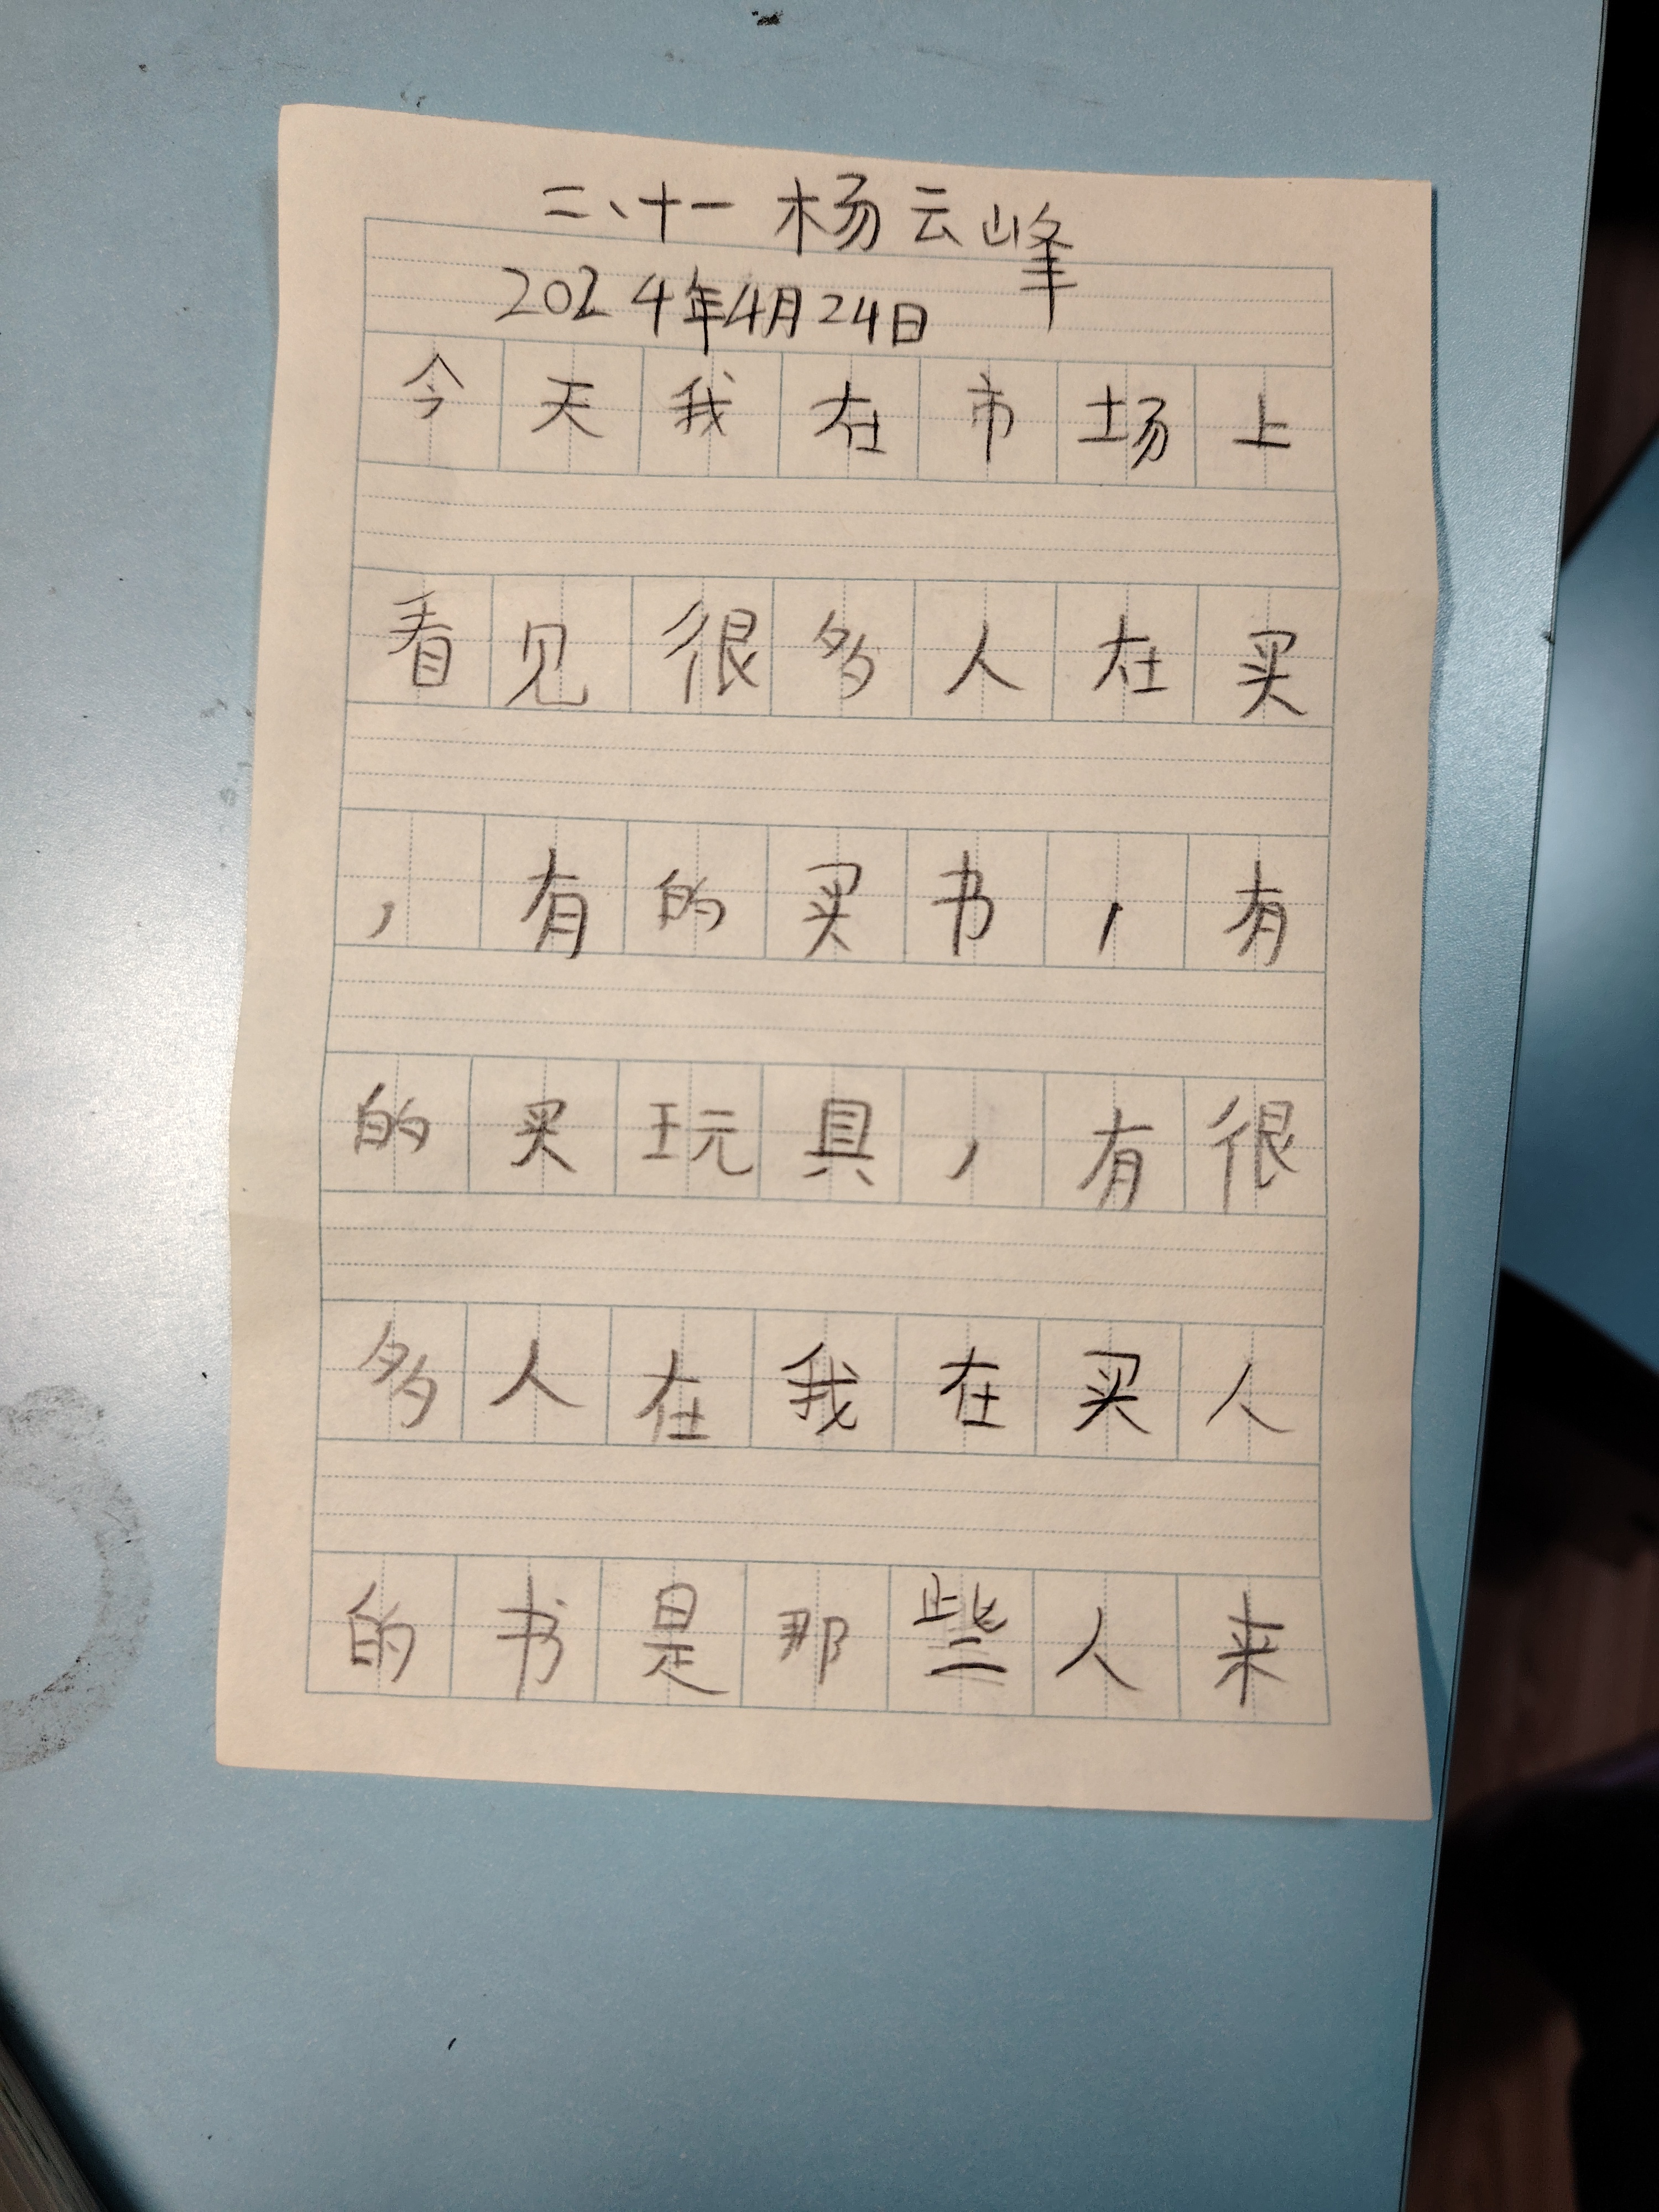 二、十一 杨云峰
2024年4月24日
今天我在市场上
看见很多人在买
，有的买书，有
的买玩具，有很
多人在我在买人
的书是那些人来